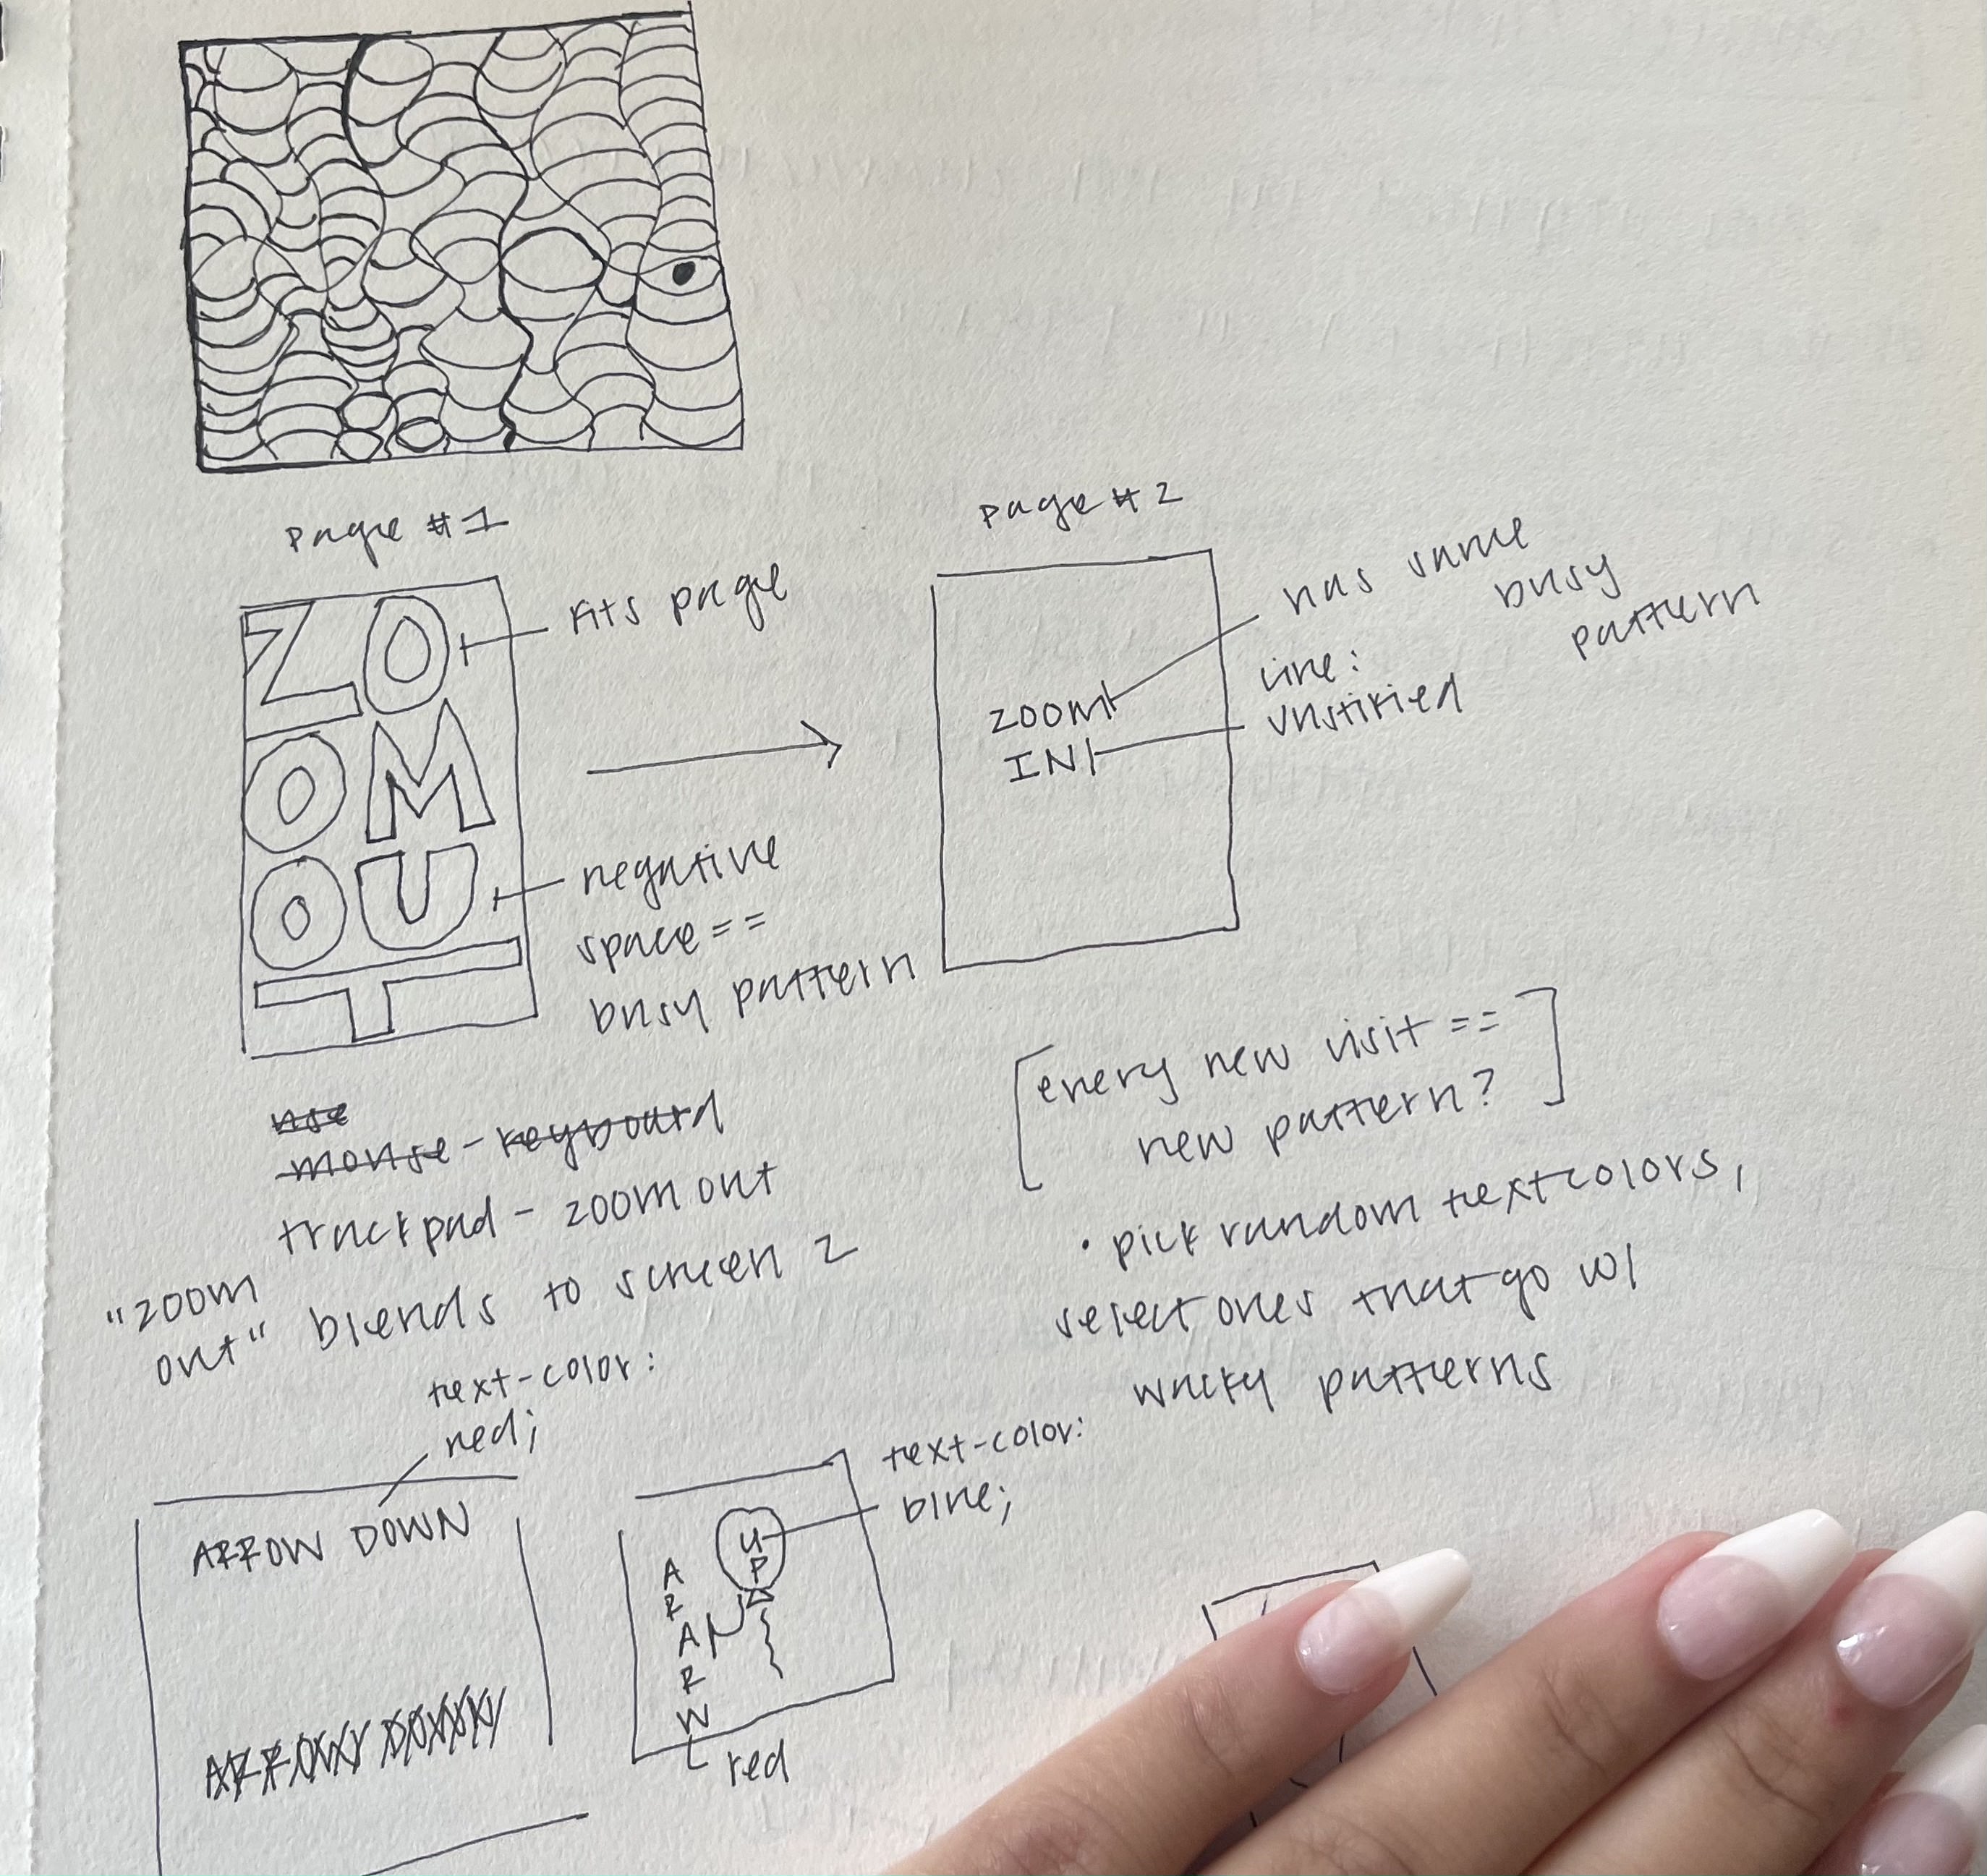 page #1
page #2
ZO
OM
OU
T
fits page
negative
space ==
busy pattern
zoom
IN
has same
busy
pattern
line:
unstiried
use
mouse - keyboard
trackpad - zoom out
"zoom
out" blends to screen 2
[every new visit ==
new pattern?]
• pick random text colors,
select ones that go w/
wacky patterns
text-color:
red;
ARROW DOWN
ARROW DOWN
text-color:
blue;
UP
A
R
A
R
W
red